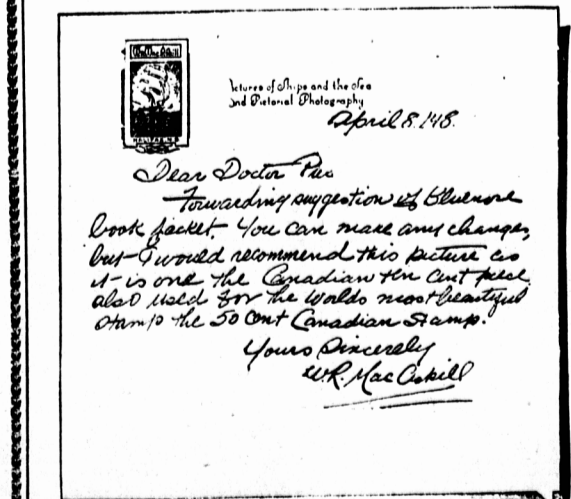 MacAskill
HALIFAX N.S.
ictures of Ships and the Sea
and Pictorial Photography
April 8. '48.
Dear Doctor
Forwarding suggestion of Bluenose
book jacket. You can make any changes,
but I would recommend this picture as
it is one the Canadian ten cent piece
also used for the Worlds most beautiful
stamp the 50 cent Canadian Stamp.
Yours Sincerely
W.R. MacAskill